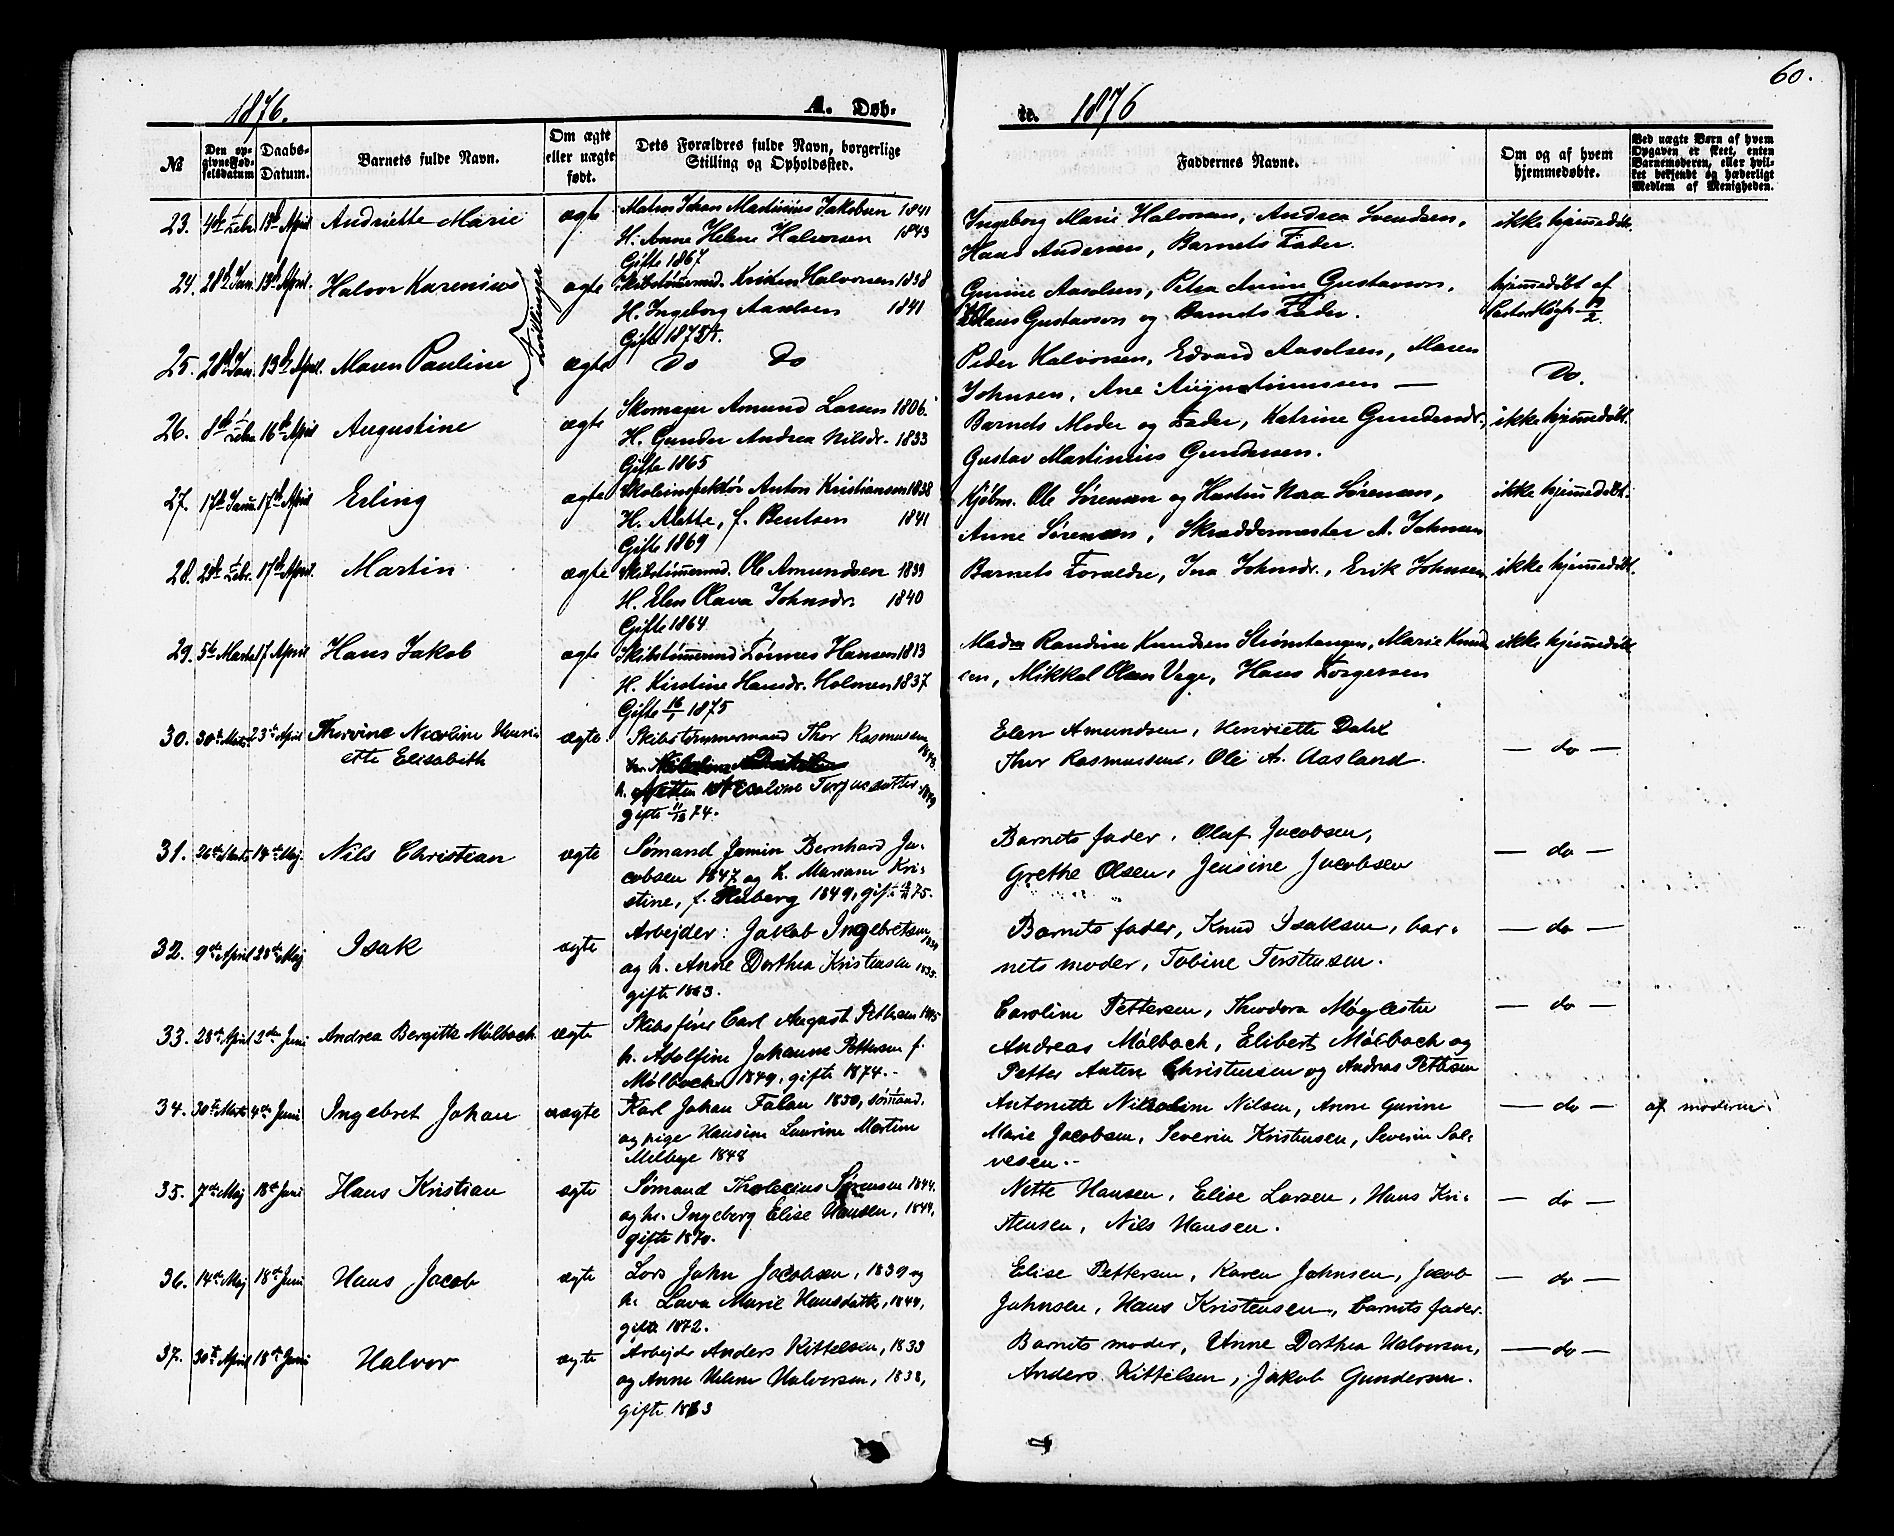 60.
1876. A. Døb-
te. 1876
No
Den op-
givne Fød-
selsdatum
Daabs-
Datum.
Barnets fulde Navn.
Om ægte
eller uægte
født.
Dets Forældres fulde Navn, borgerlige
Stilling og Opholdssted.
Faddernes Navne.
Om og af hvem
hjemmedøbte.
Ved uægte Børn af hvem
Opgaven er skeet, enten
Barnemoderen, eller hvil-
ket bekjendt og hæderligt
Medlem af Menigheden.
23. 4de Febr. 13de April Andriette Marie ægte Matros Johan Martinius Jakobsen 1841
H. Anne Helene Halvorsen 1843
Gifte 1867
Ingeborg Marie Halvorsen, Andrea Svendsen,
Hans Andersen, Barnets Fader.
ikke hjemmedøbt.
24. 28de Jan. 13de April. Halvor Karenius ægte Skibstømmermd. Kristen Halvorsen 1838
Tvillinger
H. Ingeborg Aaselsen 1841
Gifte 1873
Gurine Aaselsen, Petra Anine Gustavson,
Klaus Gustavson og Barnets Fader.
hjemmedøbt af
25. 28de Jan. 13de April. Maren Pauline ægte Do Do
Peder Halvorsen, Edvard Aaselsen, Maren
Johnsen, Ane Augustinussen —
Do.
26. 8de Febr. 16de April Augustine ægte Skomager Amund Larsen 1806.
H. Gunder Andrea Nilsdr. 1833
Gifte 1865
Barnets Moder og Fader, Katrine Gundersdr.,
Gustav Martinius Gundersen.
ikke hjemmedøbt.
27. 17de Janu. 17de April Erling ægte Skoleinspektør Anton Kristiansen 1838
H. Alette, f. Bentsen 1841
Gifte 1869
Kjøbm. Ole Sørensen og Hustru Nora Sørensen,
Anne Sørensen, Skræddermester A. Johnsen
ikke hjemmedøbt.
28. Febr. 17de April. Martin ægte Skibstømmermd. Ole Amundsen 1839
H. Elen Olava Johnsdr. 1840
Gifte 1864
Barnets Forældre, Ina Johnsdr., Erik Johnsen
ikke hjemmedøbt.
29. 5te Marts 17 April Hans Jakob ægte Skibstømmermd Tønnes Hansen 1813
H. Kirstine Hansdr. Holmen 1837
Gifte 16/1 1875
Madm Randine Knudsen Strømtangen, Marie Knud
sen, Mikkel Olsen Vege, Hans Torgersen
ikke hjemmedøbt
30. 30te Marts 23de April Thorvine Nicoline Henri
ette Elisabeth
ægte. Skibstømmermand Thor Rasmussen 1848.
h. Nicoline Terjesdatter 1849
gifte 11/12 74.
Elen Amundsen, Henriette Dahl
Thor Rasmussen, Ole A. Aasland.
— do —
31. 26te Marts. 14de Maj. Nils Christian ægte Sømand Jamin Bernhard Ja-
cobsen 1847 og h. Mariam Kri-
stine, f. 1849, gift 75.
Barnets fader, Olaf Jacobsen,
Grethe Olsen, Jensine Jacobsen
— do —
32. 9de April 28de Maj Isak ægte Arbejder: Jakob Ingebretsen
og h. Anne Dorthea Kristensen 1835.
gifte 1863.
Barnets fader, Knud Isaksen, bar-
nets moder, Tobine Terstensen.
— do —
33. 28de April 2den Juni Andrea Bergitte Mølbach. ægte Skibsfører Carl August Pettersen 1845
h. Adolfine Johanne Pettersen f.
Mølbach 1849, gifte 1874.
Caroline Pettersen, Theodora Møglestu
Andreas Mølbach, Elibert Mølbach og
Petter Anton Christensen og Andreas Pettersen
— do —
34. 30te Marts 4de Juni Ingebret Johan uægte Karl Johan Falan 1850, sømand,
og pige Hansine Laurine Martine
Milbye 1848
Antonette Nikoline Nilsen, Anne Gurine
Marie Jacobsen, Severin Kristensen, Severin Sal-
vesen.
— do —
af moderen.
35. 7de Maj 18de Juni Hans Kristian ægte Sømand Tholecius Sørensen 1844.
og h. Ingeborg Elise Hansen, 1849,
gifte 1870.
Nette Hansen, Elise Larsen, Hans Kri-
stensen, Nils Hansen.
— do —
36. 14de Maj 18de Juni Hans Jacob ægte Lods John Jacobsen, 1839 og
h. Lava Marie Hansdatter, 1849,
gifte 1872.
Elise Pettersen, Karen Johnsen, Jacob
Johnsen, Hans Kristensen, barnets fader.
— do —
37. 30te April 18de Juni Halvor ægte Arbejder Anders Kittelsen, 1833
og Anne Helene Halvorsen, 1838,
gifte 1863
Barnets moder, Anne Dorthea Halvorsen,
Anders Kittelsen, Jakob Gundersen.
— do —